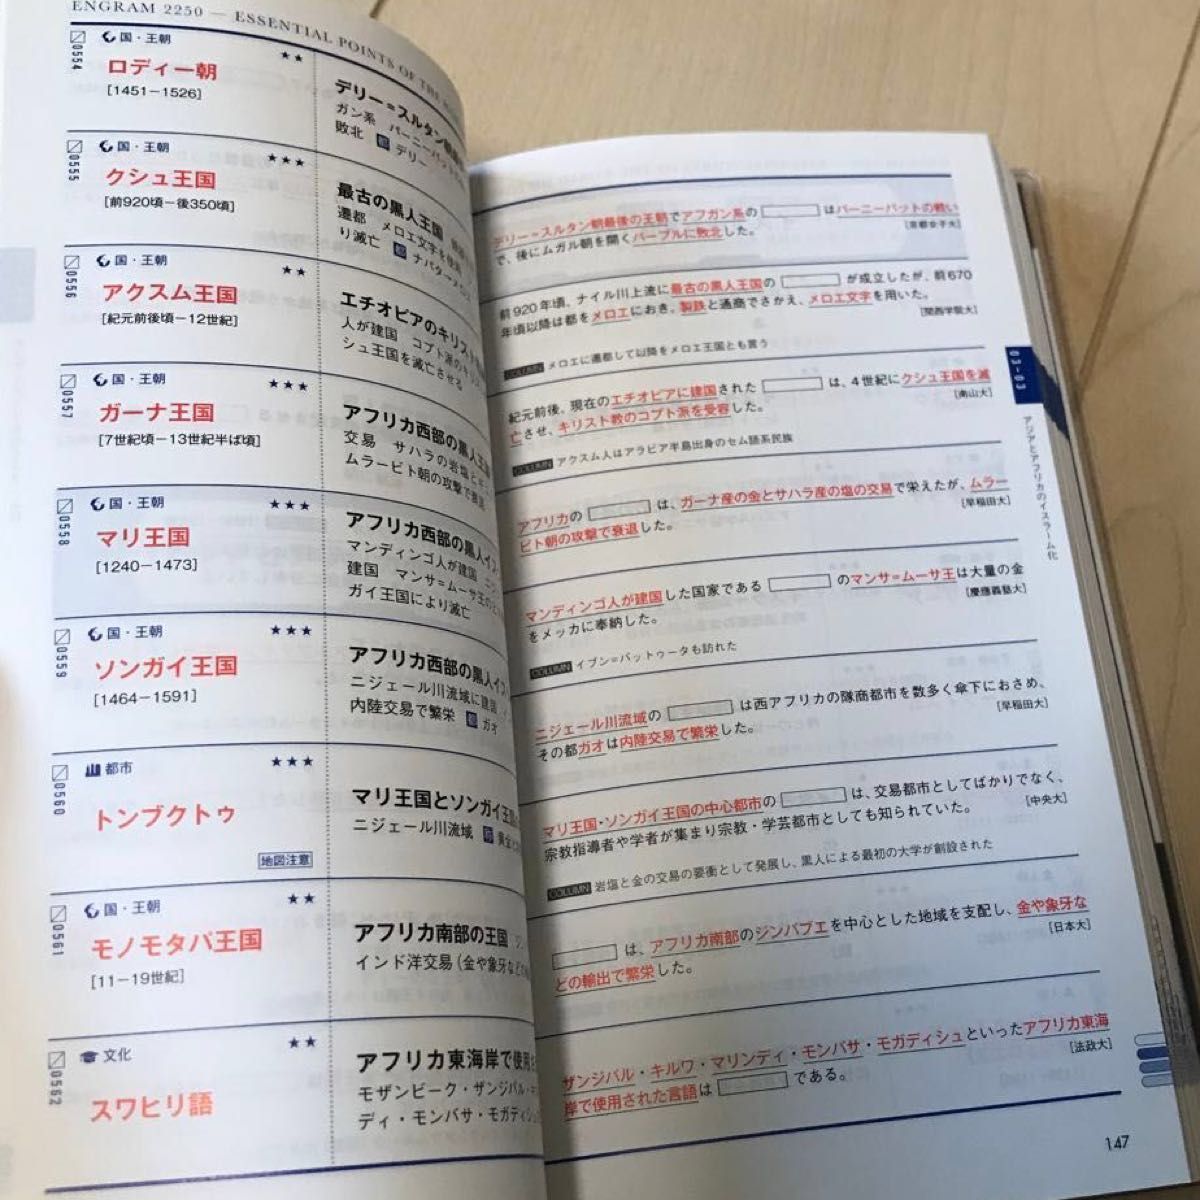 ENGRAM 2250 — ESSENTIAL POINTS OF THE
0554
国・王朝
★★
ロディー朝
[1451−1526]
デリー=スルタン朝
ガン系 パーニーパットの
敗北 都 デリー
0555
国・王朝
★★★
クシュ王国
[前920頃−後350頃]
最古の黒人王国
遷都 メロエ文字を使用
り滅亡 都 ナパタ→メロエ
0556
国・王朝
★★
アクスム王国
[紀元前後頃−12世紀]
エチオピアのキリスト
人が建国 コプト派のキリス
シュ王国を滅亡させる
0557
国・王朝
★★★
ガーナ王国
[7世紀頃−13世紀半ば頃]
アフリカ西部の黒人王
交易 サハラの岩塩と
ムラービト朝の攻撃で衰退
0558
国・王朝
★★★
マリ王国
[1240−1473]
アフリカ西部の黒人イス
マンディンゴ人が建国 ニジ
建国 マンサ=ムーサ王の
ガイ王国により滅亡
0559
国・王朝
★★★
ソンガイ王国
[1464−1591]
アフリカ西部の黒人イス
ニジェール川流域に建国
内陸交易で繁栄 都 ガオ
0560
都市
★★★
トンブクトゥ
地図注意
マリ王国とソンガイ王国
ニジェール川流域 黄金
0561
国・王朝
★★
モノモタパ王国
[11−19世紀]
アフリカ南部の王国
インド洋交易(金や象牙など
0562
文化
★★
スワヒリ語
アフリカ東海岸で使用
モザンビーク・ザンジバル・
ディ・モンバサ・モガディシュ
デリー=スルタン朝最後の王朝でアフガン系の は パーニーパットの戦い
で、後にムガル朝を開くバーブルに敗北した。
[京都女子大]
前920年頃、ナイル川上流に最古の黒人王国の が成立したが、前670
年頃以降は都をメロエにおき、製鉄と通商でさかえ、メロエ文字を用いた。
[関西学院大]
COLUMN メロエに遷都して以降をメロエ王国とも言う
紀元前後、現在のエチオピアに建国された は、4世紀にクシュ王国を滅
亡させ、キリスト教のコプト派を受容した。
[南山大]
COLUMN アクスム人はアラビア半島出身のセム語系民族
アフリカの は、ガーナ産の金とサハラ産の塩の交易で栄えたが、ムラー
ビト朝の攻撃で衰退した。
[早稲田大]
マンディンゴ人が建国した国家である のマンサ=ムーサ王は大量の金
をメッカに奉納した。
[慶應義塾大]
COLUMN イブン=バットゥータも訪れた
ニジェール川流域の は西アフリカの隊商都市を数多く傘下におさめ、
その都ガオは内陸交易で繁栄した。
[早稲田大]
マリ王国・ソンガイ王国の中心都市の は、交易都市としてばかりでなく、
宗教指導者や学者が集まり宗教・学芸都市としても知られていた。
[中央大]
COLUMN 岩塩と金の交易の要衝として発展し、黒人による最初の大学が創設された
は、アフリカ南部のジンバブエを中心とした地域を支配し、金や象牙な
どの輸出で繁栄した。
[日本大]
ザンジバル・キルワ・マリンディ・モンバサ・モガディシュといったアフリカ東海
岸で使用された言語は である。
[法政大]
03-03
アジアとアフリカのイスラーム化
147